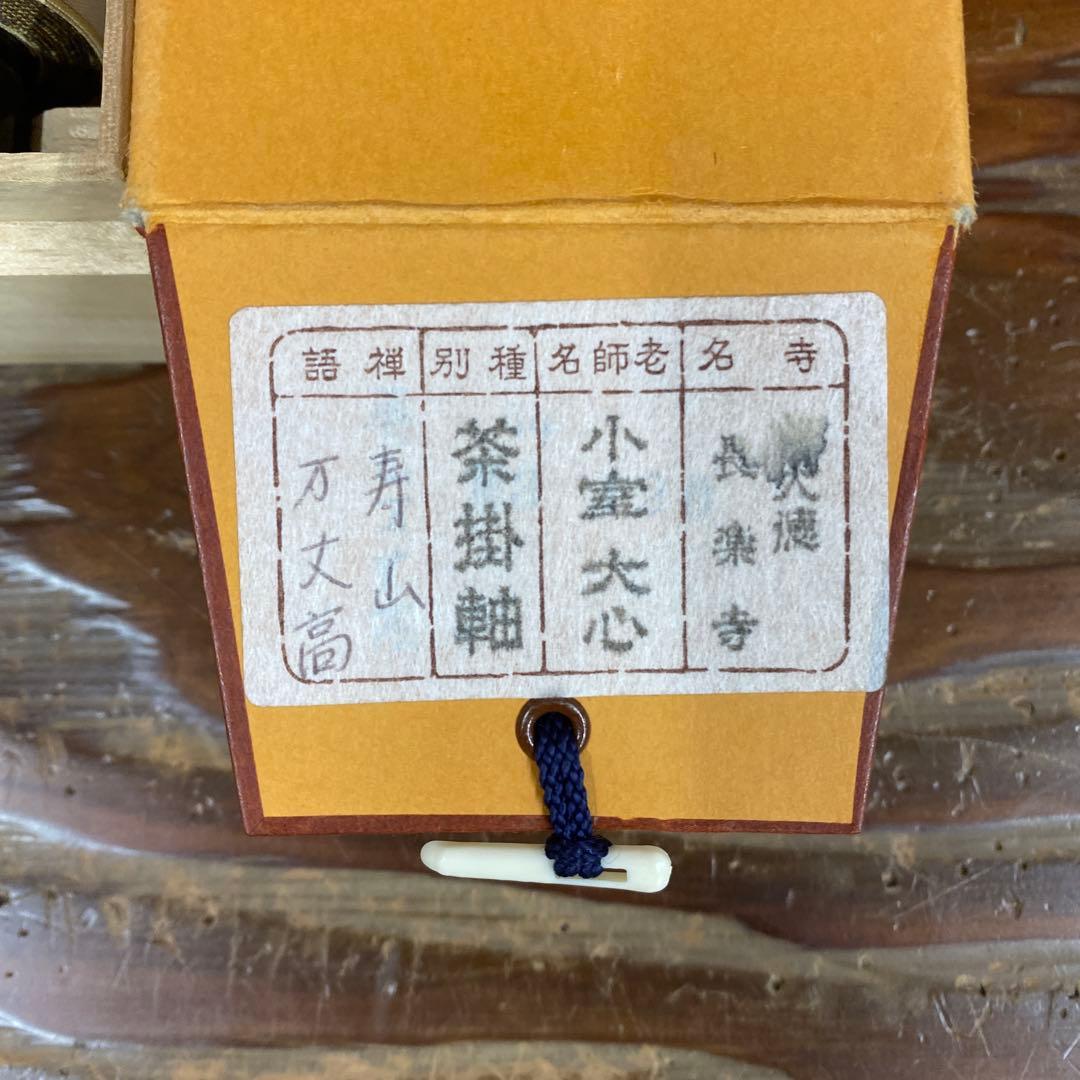 寺名
大徳
長楽寺
老師名
小室大心
種別
茶掛軸
禅語
寿山
万丈高